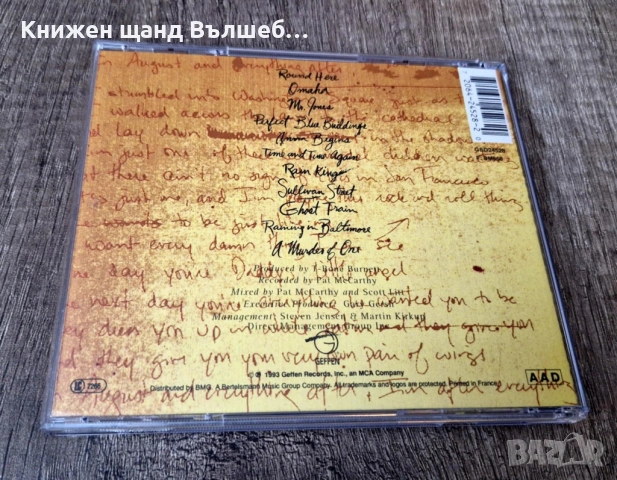 Книжен щанд Вълшеб...
in August and everything after
Round Here
Omaha
Mr. Jones
Perfect Blue Buildings
Anna Begins
Time and Time Again
Rain King
Sullivan Street
Ghost Train
Raining in Baltimore
A Murder of One
stumbled into Washington square just as
walked across the cathedral
lay down in the shadow
just one of these children
there ain't no sign of in San Francisco
just me, and I'm rock and roll thing
to be just
want every damn thing see
day you're Daddy's angel
next day you're wanted you to be
dress you up in and they give you
they give you your very own pair of wings
august and everything after, I'm after everything
Produced by T-Bone Burnett
Recorded by Pat McCarthy
Mixed by Pat McCarthy and Scott Litt
Executive Producer: Gary Gersh
Management: Steven Jensen & Martin Kirkup
Direct Management Group Inc.
GEFFEN
℗ © 1993 Geffen Records, Inc., an MCA Company
Distributed by BMG. A Bertelsmann Music Group Company. All trademarks and logos are protected. Printed in France.
AAD
7 20642 45282
GED24528
BAZAR